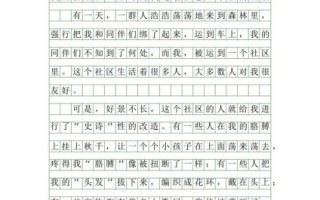 有一天，一群人浩浩荡荡地来到森林里，
强行把我和同伴们绑了起来，运到车上，我的
同伴们不知到了何处，而我，被运到一个社区
里。这个社区生活着很多人，大多数人对我很
友好。
可是，好景不长，这个社区的人就给我进
行了“史诗”性的改造。有一些人在我的胳膊
上挂上秋千，让一个个小孩子在上面荡来荡去，
疼得我“胳膊”像被扭断了一样；有一些人把
我的“头发”拔下来，编织成花环，戴在头上；